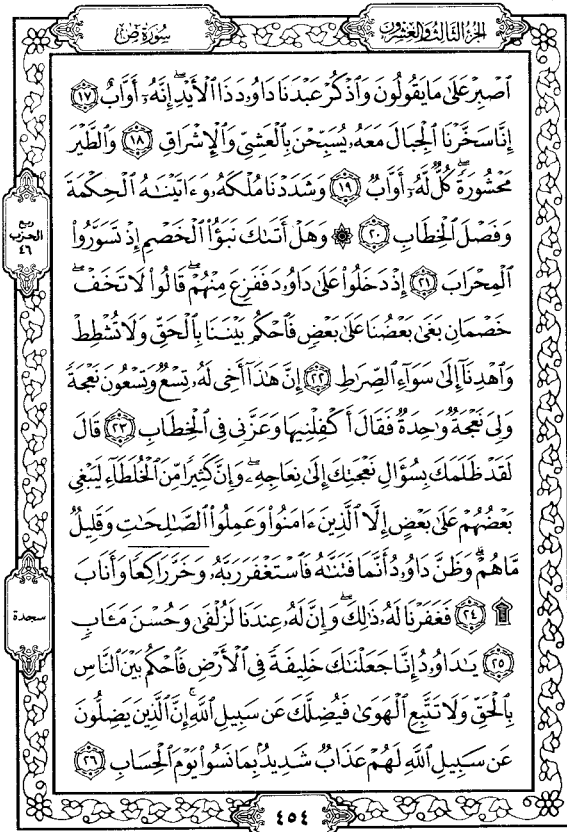 الجزء الثالث والعشرون
سورة ص
ٱصۡبِرۡ عَلَىٰ مَا يَقُولُونَ وَٱذۡكُرۡ عَبۡدَنَا دَاوُۥدَ ذَا ٱلۡأَيۡدِۖ إِنَّهُۥٓ أَوَّابٌ ١٧
إِنَّا سَخَّرۡنَا ٱلۡجِبَالَ مَعَهُۥ يُسَبِّحۡنَ بِٱلۡعَشِيِّ وَٱلۡإِشۡرَاقِ ١٨ وَٱلطَّيۡرَ
مَحۡشُورَةٗۖ كُلّٞ لَّهُۥٓ أَوَّابٞ ١٩ وَشَدَدۡنَا مُلۡكَهُۥ وَءَاتَيۡنَٰهُ ٱلۡحِكۡمَةَ
وَفَصۡلَ ٱلۡخِطَابِ ٢٠ ۞ وَهَلۡ أَتَىٰكَ نَبَؤُاْ ٱلۡخَصۡمِ إِذۡ تَسَوَّرُواْ
ٱلۡمِحۡرَابَ ٢١ إِذۡ دَخَلُواْ عَلَىٰ دَاوُۥدَ فَفَزِعَ مِنۡهُمۡۖ قَالُواْ لَا تَخَفۡۖ
خَصۡمَانِ بَغَىٰ بَعۡضُنَا عَلَىٰ بَعۡضٖ فَٱحۡكُم بَيۡنَنَا بِٱلۡحَقِّ وَلَا تُشۡطِطۡ
وَٱهۡدِنَآ إِلَىٰ سَوَآءِ ٱلصِّرَٰطِ ٢٢ إِنَّ هَٰذَآ أَخِي لَهُۥ تِسۡعٞ وَتِسۡعُونَ نَعۡجَةٗ
وَلِيَ نَعۡجَةٞ وَٰحِدَةٞ فَقَالَ أَكۡفِلۡنِيهَا وَعَزَّنِي فِي ٱلۡخِطَابِ ٢٣ قَالَ
لَقَدۡ ظَلَمَكَ بِسُؤَالِ نَعۡجَتِكَ إِلَىٰ نِعَاجِهِۦۖ وَإِنَّ كَثِيرٗا مِّنَ ٱلۡخُلَطَآءِ لَيَبۡغِي
بَعۡضُهُمۡ عَلَىٰ بَعۡضٍ إِلَّا ٱلَّذِينَ ءَامَنُواْ وَعَمِلُواْ ٱلصَّٰلِحَٰتِ وَقَلِيلٞ
مَّا هُمۡۗ وَظَنَّ دَاوُۥدُ أَنَّمَا فَتَنَّٰهُ فَٱسۡتَغۡفَرَ رَبَّهُۥ وَخَرَّ رَاكِعٗا وَأَنَابَ
۩ ٢٤ فَغَفَرۡنَا لَهُۥ ذَٰلِكَۖ وَإِنَّ لَهُۥ عِندَنَا لَزُلۡفَىٰ وَحُسۡنَ مَـَٔابٖ
٢٥ يَٰدَاوُۥدُ إِنَّا جَعَلۡنَٰكَ خَلِيفَةٗ فِي ٱلۡأَرۡضِ فَٱحۡكُم بَيۡنَ ٱلنَّاسِ
بِٱلۡحَقِّ وَلَا تَتَّبِعِ ٱلۡهَوَىٰ فَيُضِلَّكَ عَن سَبِيلِ ٱللَّهِۚ إِنَّ ٱلَّذِينَ يَضِلُّونَ
عَن سَبِيلِ ٱللَّهِ لَهُمۡ عَذَابٞ شَدِيدُۢ بِمَا نَسُواْ يَوۡمَ ٱلۡحِسَابِ ٢٦
ربع
الحزب
٤٦
سجدة
٤٥٤